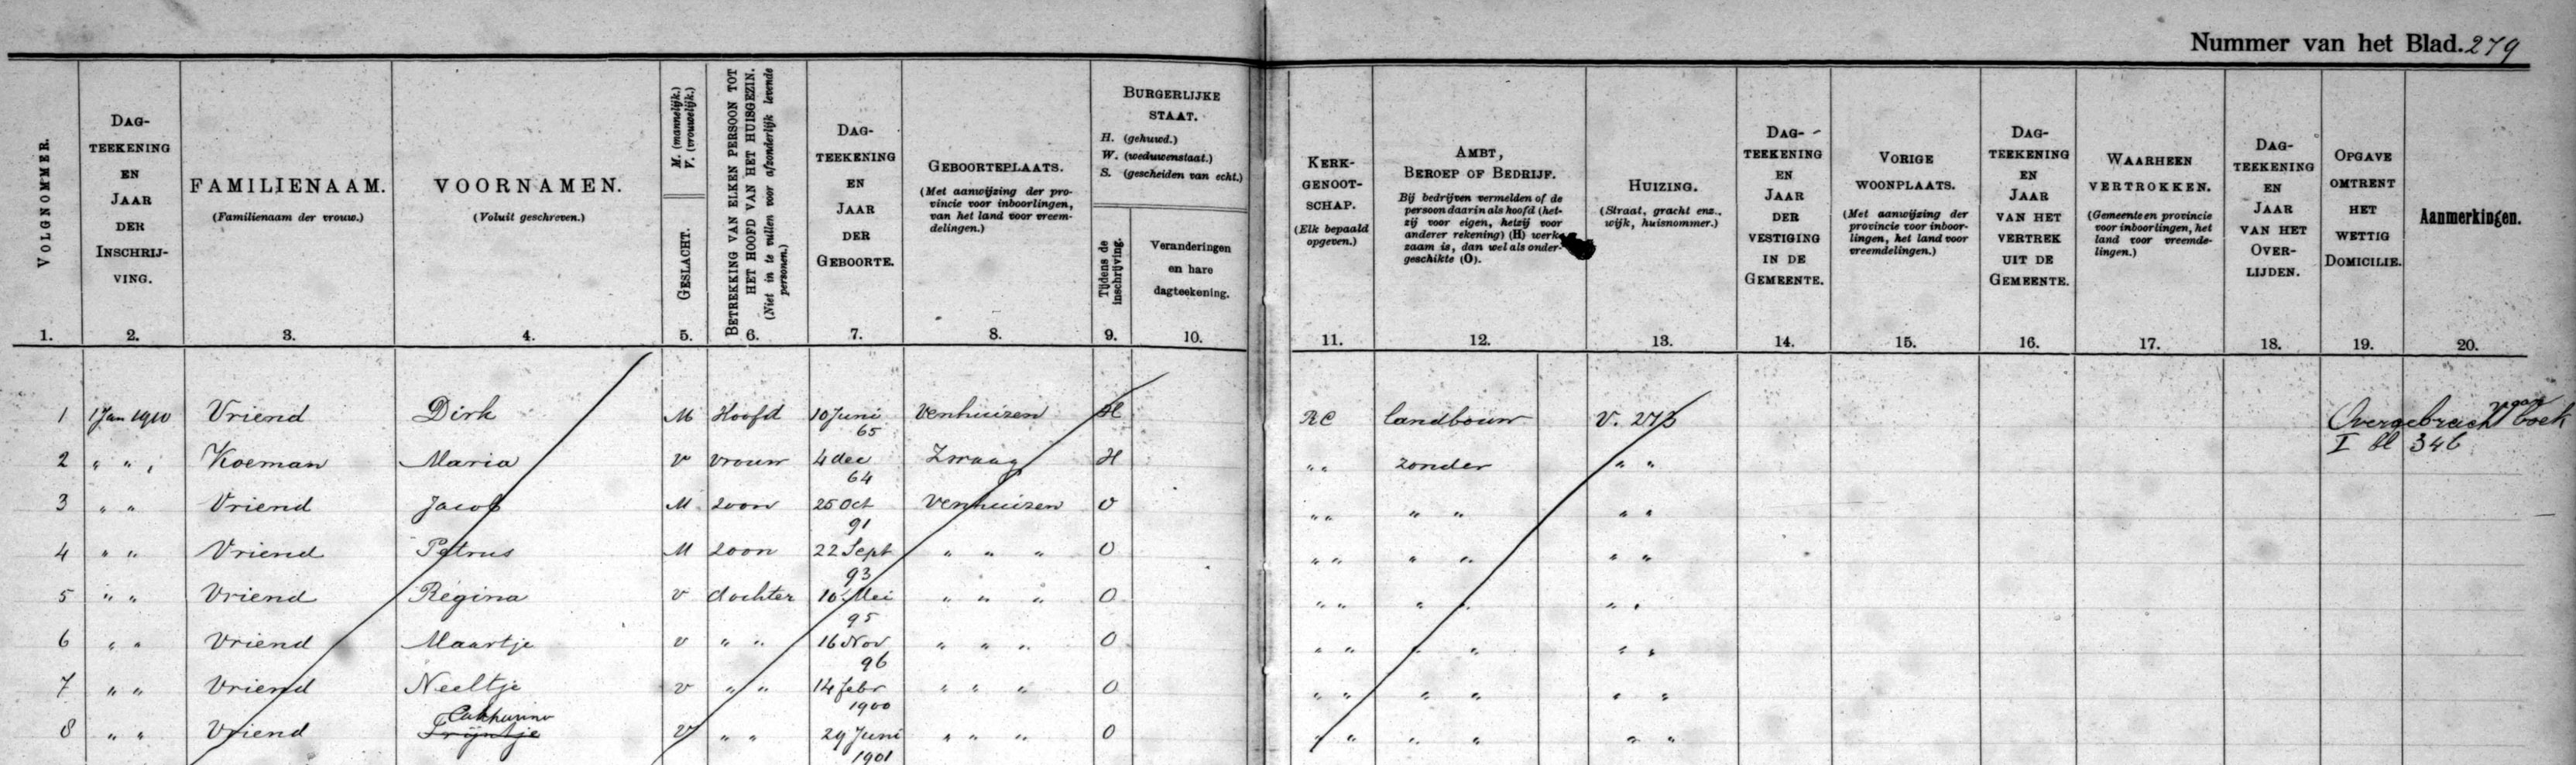 Nummer van het Blad. 279
VOLGNOMMER.
1.
DAG-
TEEKENING
EN
JAAR
DER
INSCHRIJ-
VING.
2.
FAMILIENAAM.
(Familienaam der vrouw.)
3.
VOORNAMEN.
(Voluit geschreven.)
4.
GESLACHT.
M. (mannelijk.)
V. (vrouwelijk.)
5.
BETREKKING VAN ELKEN PERSOON TOT
HET HOOFD VAN HET HUISGEZIN.
(Niet in te vullen voor afzonderlijk levende
personen.)
6.
DAG-
TEEKENING
EN
JAAR
DER
GEBOORTE.
7.
GEBOORTEPLAATS.
(Met aanwijzing der pro-
vincie voor inboorlingen,
van het land voor vreem-
delingen.)
8.
BURGERLIJKE
STAAT.
H. (gehuwd.)
W. (weduwenstaat.)
S. (gescheiden van echt.)
Tijdens de
inschrijving.
9.
Veranderingen
en hare
dagteekening.
10.
KERK-
GENOOT-
SCHAP.
(Elk bepaald
opgeven.)
11.
AMBT,
BEROEP OF BEDRIJF.
Bij bedrijven vermelden of de
persoon daarin als hoofd (het-
zij voor eigen, hetzij voor
anderer rekening) (H) werk-
zaam is, dan wel als onder-
geschikte (O).
12.
HUIZING.
(Straat, gracht enz.,
wijk, huisnommer.)
13.
DAG-
TEEKENING
EN
JAAR
DER
VESTIGING
IN DE
GEMEENTE.
14.
VORIGE
WOONPLAATS.
(Met aanwijzing der
provincie voor inboor-
lingen, het land voor
vreemdelingen.)
15.
DAG-
TEEKENING
EN
JAAR
VAN HET
VERTREK
UIT DE
GEMEENTE.
16.
WAARHEEN
VERTROKKEN.
(Gemeente en provincie
voor inboorlingen, het
land voor vreemde-
lingen.)
17.
DAG-
TEEKENING
EN
JAAR
VAN HET
OVER-
LIJDEN.
18.
OPGAVE
OMTRENT
HET
WETTIG
DOMICILIE.
19.
Aanmerkingen.
20.
1 1 Jan 1910 Vriend Dirk M Hoofd 10 Juni 65 Venhuizen H RC landbouw V. 273 Overgebracht boek
I bl 346
2 " " " Koeman Maria v vrouw 4 dec 64 Zwaag H " " zonder " "
3 " " Vriend Jacob M zoon 25 Oct 91 Venhuizen O " " " " " "
4 " " Vriend Petrus M zoon 22 Sept 93 " " " O " " " " " "
5 " " Vriend Regina v dochter 10 Mei 95 " " " O " " " " " "
6 " " Vriend Maartje v " " 16 Nov 96 " " " O " " " " " "
7 " " Vriend Neeltje v " " 14 febr 1900 " " " O " " " " " "
Catharina
8 " " Vriend Trijntje v " " 29 Juni 1901 " " " O " " " " " "